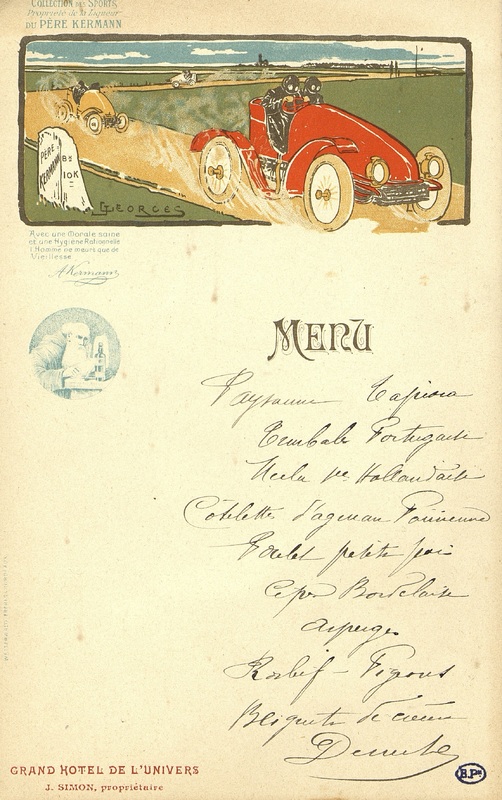 COLLECTION DES SPORTS,
Propriété de la Liqueur
DU PÈRE KERMANN
PÈRE
KERMANN
Bs
10K
GEORGES
Avec une Morale saine
et une Hygiène Rationnelle
l'Homme ne meurt que de
Vieillesse
AKermann
MENU
Paysanne Tapioca
Timbale Portugaise
Merlu sce Hollandaise
Côtelettes d'agneau
Poulet petits pois
Cèpes Bordelaise
Asperges
Rosbif - Pigeons
Beignets de crème
Desserts
GRAND HOTEL DE L'UNIVERS
J. SIMON, propriétaire
B.Ps